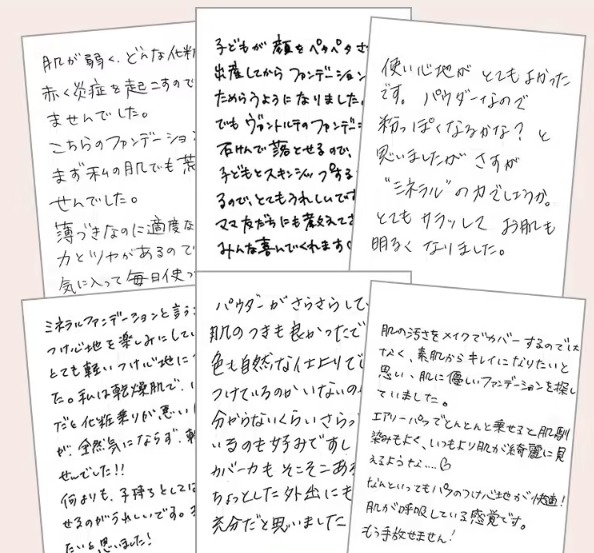 肌が弱く、どんな化粧
赤く炎症を起こすので
ませんでした。
こちらのファンデーション
まず私の肌でも荒
せんでした。
薄づきなのに適度な
カとツヤがあるので
気に入って毎日使っ
子どもが顔をペタペタさ
出産してから ファンデーション
ためらうようになりました。
でも ヴァントルテのファンデー
石けんで落とせるので、
子どもとスキンシップする
るので、とてもうれしいです
ママ友だちにも教えてさ
みんな喜んでくれます
使い心地が とてもよかった
です。 パウダーなので
粉っぽくなるかな？ と
思いましたが さすが
"ミネラル"の力でしょうか。
とても サラッとして お肌も
明るく なりました。
ミネラルファンデーションと言う
つけ心地を楽しみにしてい
とても軽いつけ心地に
た。私は乾燥肌で、
だと化粧乗りが悪い
が、全然気にならず、
せんでした!!
何よりも、子持ちとしては
せるのがうれしいです。
たいと思いました!
パウダーがさらさらして、
肌のつきも良かったで
色も自然な仕上りで
つけているのかいないのか
分からないくらいさらっ
いるのも好みですし
カバー力もそこそこあ
ちょっとした外出にも
充分だと思いました
肌の汚さをメイクでカバーするのでは
なく、素肌からキレイになりたいと
思い、肌に優しいファンデーションを探し
ていました。
エアリーパフでとんとんと乗せると肌馴
染みもよく、いつもより肌が綺麗に見
えるような....♡
なんといってもパフのつけ心地が快適!
肌が呼吸している感覚です。
もう手放せません!